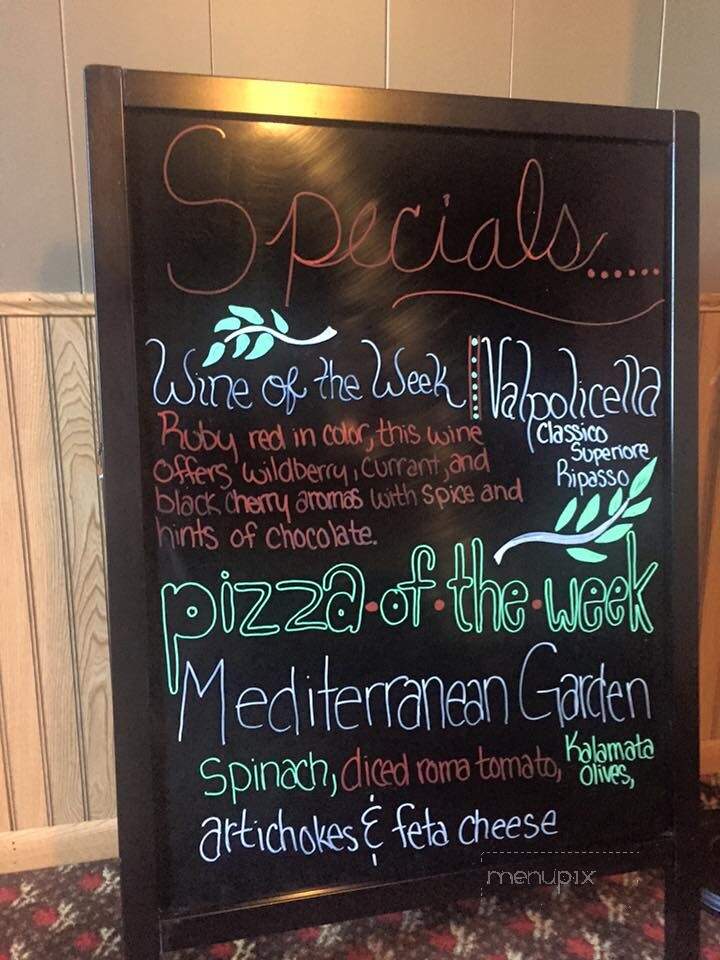 Specials......
Wine of the Week
Valpolicella
Classico
Superiore
Ripasso
Ruby red in color, this wine
offers wildberry, currant, and
black cherry aromas with spice and
hints of chocolate.
pizza·of·the·week
Mediterranean Garden
Spinach, diced roma tomato, Kalamata
olives,
artichokes & feta cheese
menupix